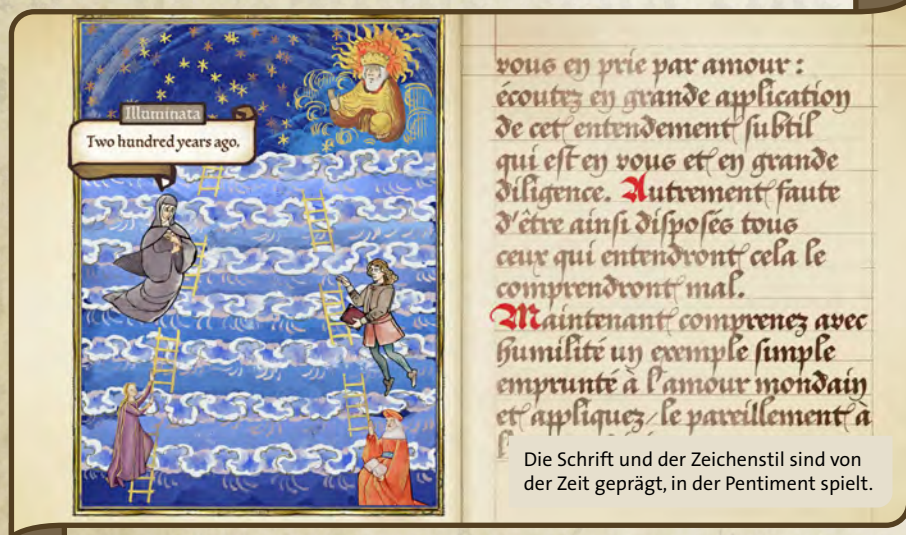 Illuminata
Two hundred years ago.
vous en prie par amour :
écoutez en grande application
de cet entendement subtil
qui est en vous et en grande
diligence. Autrement faute
d'être ainsi disposés tous
ceux qui entendront cela le
comprendront mal.
Maintenant comprenez avec
humilité un exemple simple
emprunté à l'amour mondain
et appliquez-le pareillement à
Die Schrift und der Zeichenstil sind von
der Zeit geprägt, in der Pentiment spielt.